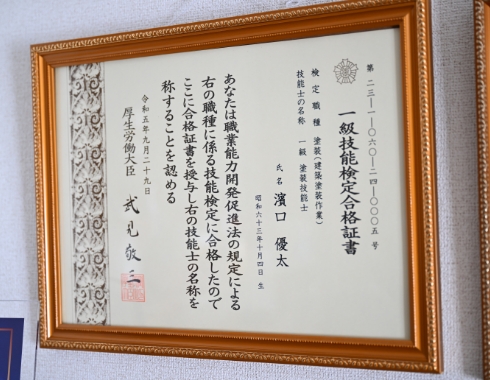 第二三―一―〇六〇―二四―〇〇〇五号
一級技能検定合格証書
検定職種 塗装(建築塗装作業)
技能士の名称 一級 塗装技能士
氏名 濱口 優太
昭和六十三年十月四日 生
あなたは職業能力開発促進法の規定による
右の職種に係る技能検定に合格したので
ここに合格証書を授与し右の技能士の名称を
称することを認める
令和五年九月二十九日
厚生労働大臣 武見敬三